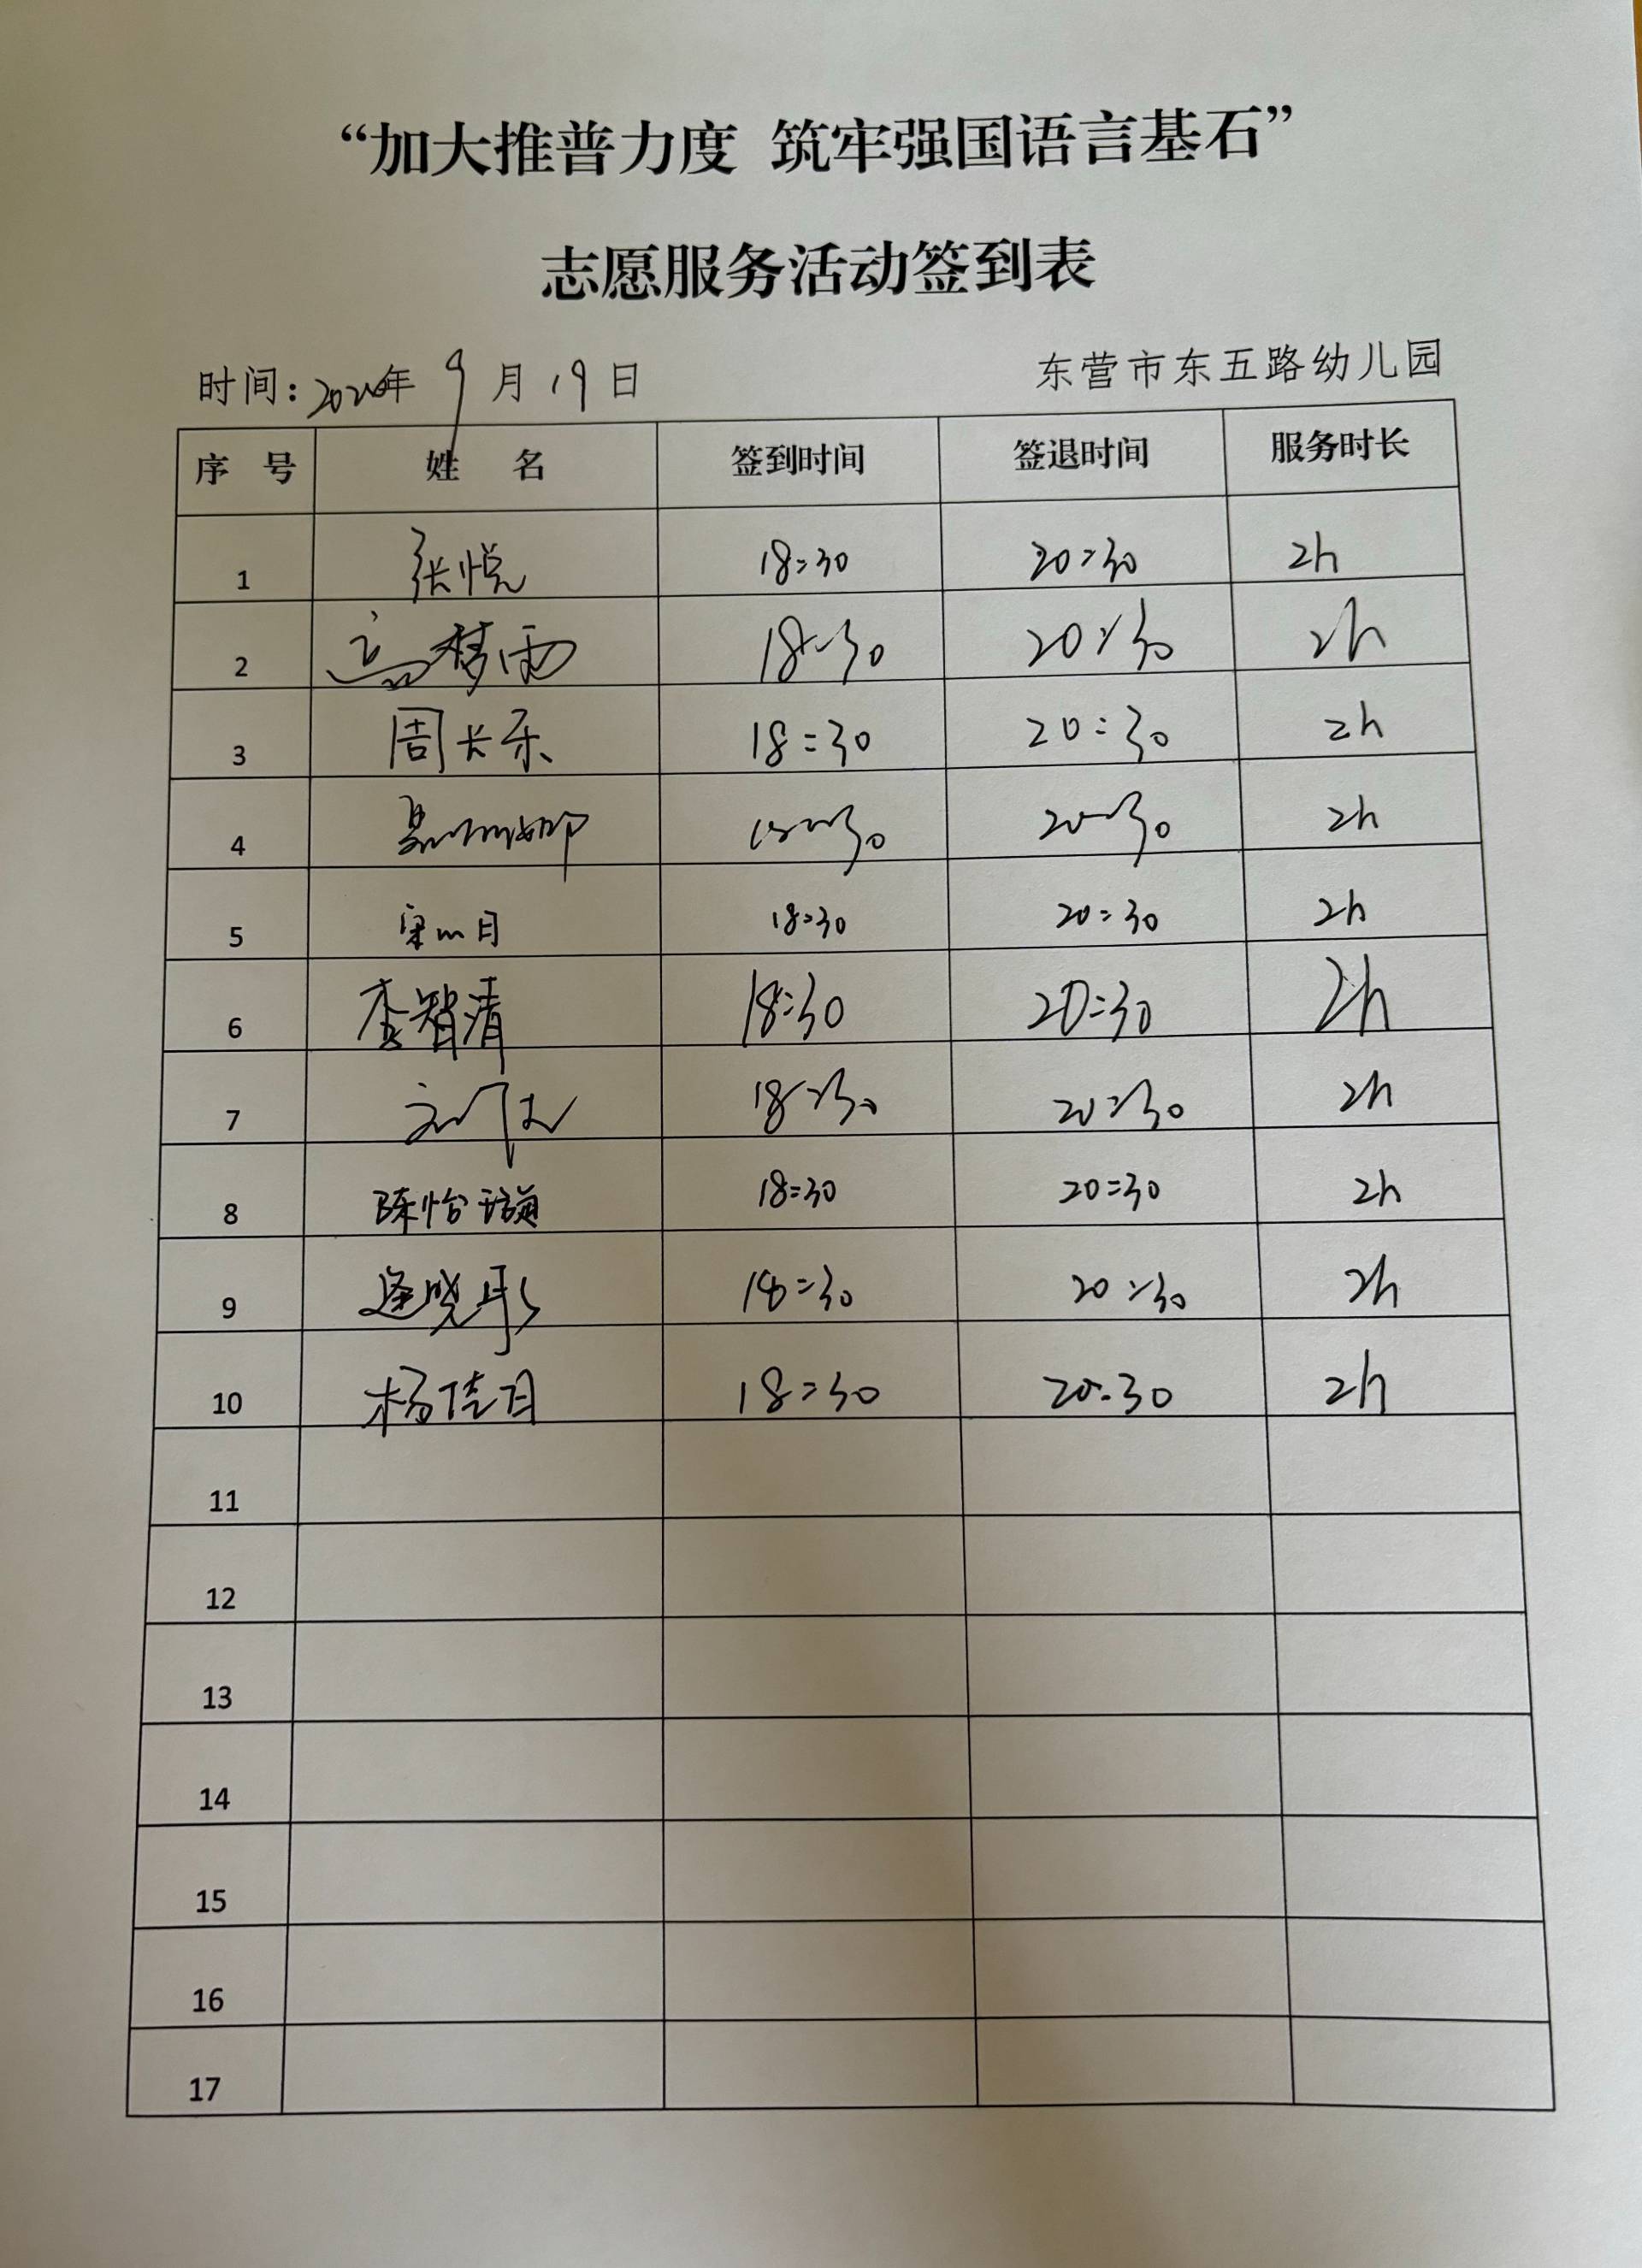 “加大推普力度 筑牢强国语言基石”
志愿服务活动签到表
时间: 年 9 月 19 日 东营市东五路幼儿园
序 号 姓 名 签到时间 签退时间 服务时长
1 张悦 18:30 20:30 2h
2 高梦雨 18:30 20:30 2h
3 周长乐 18:30 20:30 2h
4 18:30 20:30 2h
5 18:30 20:30 2h
6 李智清 18:30 20:30 2h
7 18:30 20:30 2h
8 陈怡璇 18:30 20:30 2h
9 逄晓彤 18:30 20:30 2h
10 杨佳月 18:30 20:30 2h
11
12
13
14
15
16
17